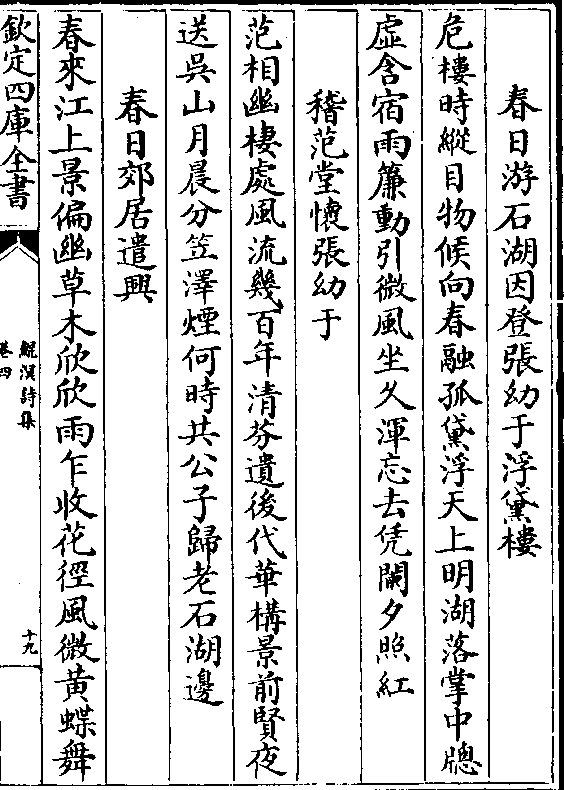 春日游石湖因登張幼于浮黛樓
危樓時縱目物候向春融孤黛浮天上明湖落掌中牕
虛含宿雨簾動引微風坐久渾忘去凭闌夕照紅
稽范堂懷張幼于
范相幽棲處風流幾百年清芬遺後代華構景前賢夜
送吳山月晨分笠澤煙何時共公子歸老石湖邊
春日郊居遣興
春來江上景偏幽草木欣欣雨乍收花徑風微黃蝶舞
欽定四庫全書
鯤溟詩集
卷四
十九